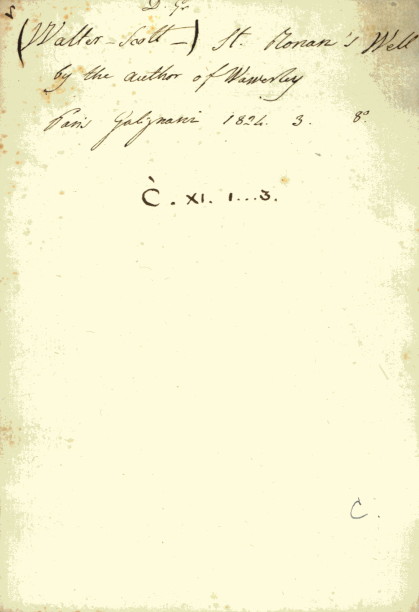 D. Gr
(Walter-Scott-) St. Ronan's Well
by the author of Wawerley
Paris Galignani 1824. 3. 8°.
C. XI. 1...3.
C.